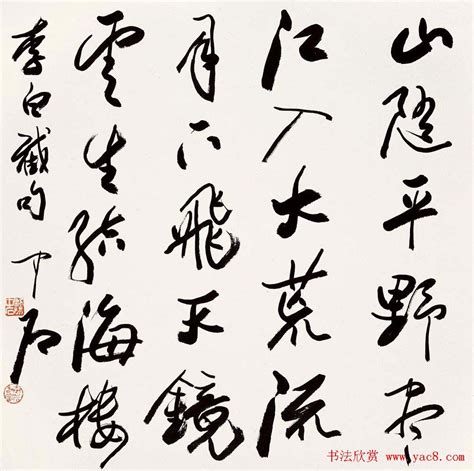 山随平野尽
江入大荒流
月下飛天鏡
雲生结海樓
李白截句 中石
书法欣赏
www.yac8.com